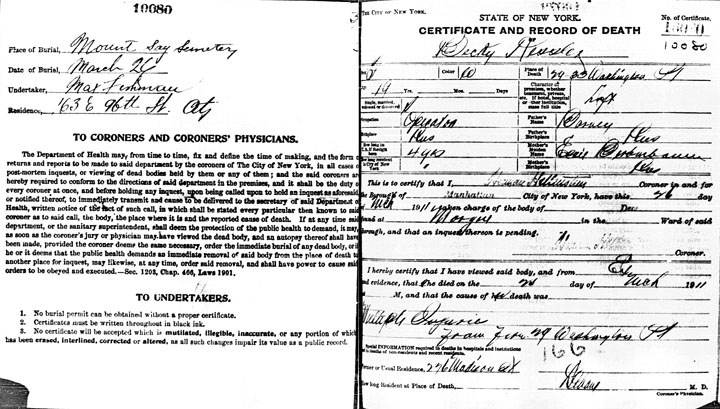 10080
Place of Burial, Mount Zion Semetery
Date of Burial, March 26
Undertaker, Max Fishman
Residence, 63 E 96th St. City
TO CORONERS AND CORONERS' PHYSICIANS.
The Department of Health may, from time to time, fix and define the time of making, and the form
returns and reports to be made to said department by the coroners of The City of New York, in all cases
post-mortem inquests, or viewing of dead bodies held by them or any of them; and the said coroners are
hereby required to conform to the directions of said department in the premises, and it shall be the duty
every coroner at once, and before holding any inquest, upon being called upon to hold an inquest as aforesaid
or notified thereof, to immediately transmit and cause to be delivered to the secretary of said Department of
Health, written notice of the fact of such call, in which shall be stated every particular then known to said
coroner as to said call, the body, the place where it is and the reported cause of death. If at any time said
department, or the sanitary superintendent, shall deem the protection of the public health to demand, it may,
as soon as the coroner's jury or physician may have viewed the dead body, and an autopsy thereof shall have
been made, provided the coroner deem the same necessary, order the immediate burial of any dead body, or
he or it deems that the public health demands an immediate removal of said body from the place of death to
another place for inquest, may likewise, at any time, order said removal, and shall have power to cause said
orders to be obeyed and executed.—Sec. 1203, Chap. 466, Laws 1901.
TO UNDERTAKERS.
1. No burial permit can be obtained without a proper certificate.
2. Certificates must be written throughout in black ink.
3. No certificate will be accepted which is mutilated, illegible, inaccurate, or any portion of which
has been erased, interlined, corrected or altered, as all such changes impair its value as a public record.
THE CITY OF NEW YORK.
STATE OF NEW YORK.
No. of Certificate.
CERTIFICATE AND RECORD OF DEATH
10080
OF
Becky
Color W
Place of Death 29 Washington Pl
19 Yrs. Mos. Days
Character of premises, whether tenement, private, etc. If hotel, hospital or other institution, state full title Loft
Single, married, widowed or divorced
Occupation Operator
Father's Name Barney
Birthplace Rus
Father's Birthplace Rus
How long in U.S. if foreign born 4 yrs
Mother's Maiden Name
How long resident in City of New York
Mother's Birthplace Rus
This is to certify that I, Coroner in and for
Borough of Manhattan City of New York, have this 26 day
of Mch 1911 taken charge of the body of Dec
found at Morgue in the Ward of said
Borough, and that an inquest thereon is pending.
Coroner.
I hereby certify that I have viewed said body, and from
and evidence, that she died on the day of Mch 1911
M, and that the cause of her death was
Multiple Injuries
from Fire 29 Washington Pl
166
Special INFORMATION required in deaths in hospitals and institutions
and in deaths of non-residents and recent residents.
Former or Usual Residence, 276 Madison St
How long Resident at Place of Death,
M. D.
Coroner's Physician.